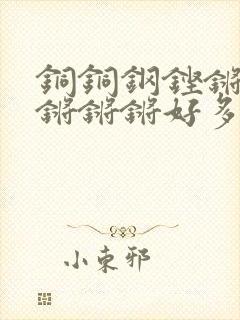 銅銅鋼鏗鏘
鏘鏘鏘好多
小束邪